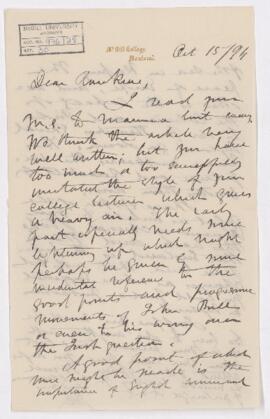 McGILL UNIVERSITY
ARCHIVES
ACC. NO.
REF.
McGill College
Montreal
Oct 15/94
Dear Rankine,
I read your
M.S. to Mamma last evening
We think the article very
well written; but you have
too much & too
imitated the style of your
college lectures which gives
a heavy air. The early
part especially needs more
lightening up which might
perhaps be given by more
reference to the
good points and progressive
movements of John Bull
or even to his wrong on
the Irish question.
A good point of which
more might be made is the
importance of English